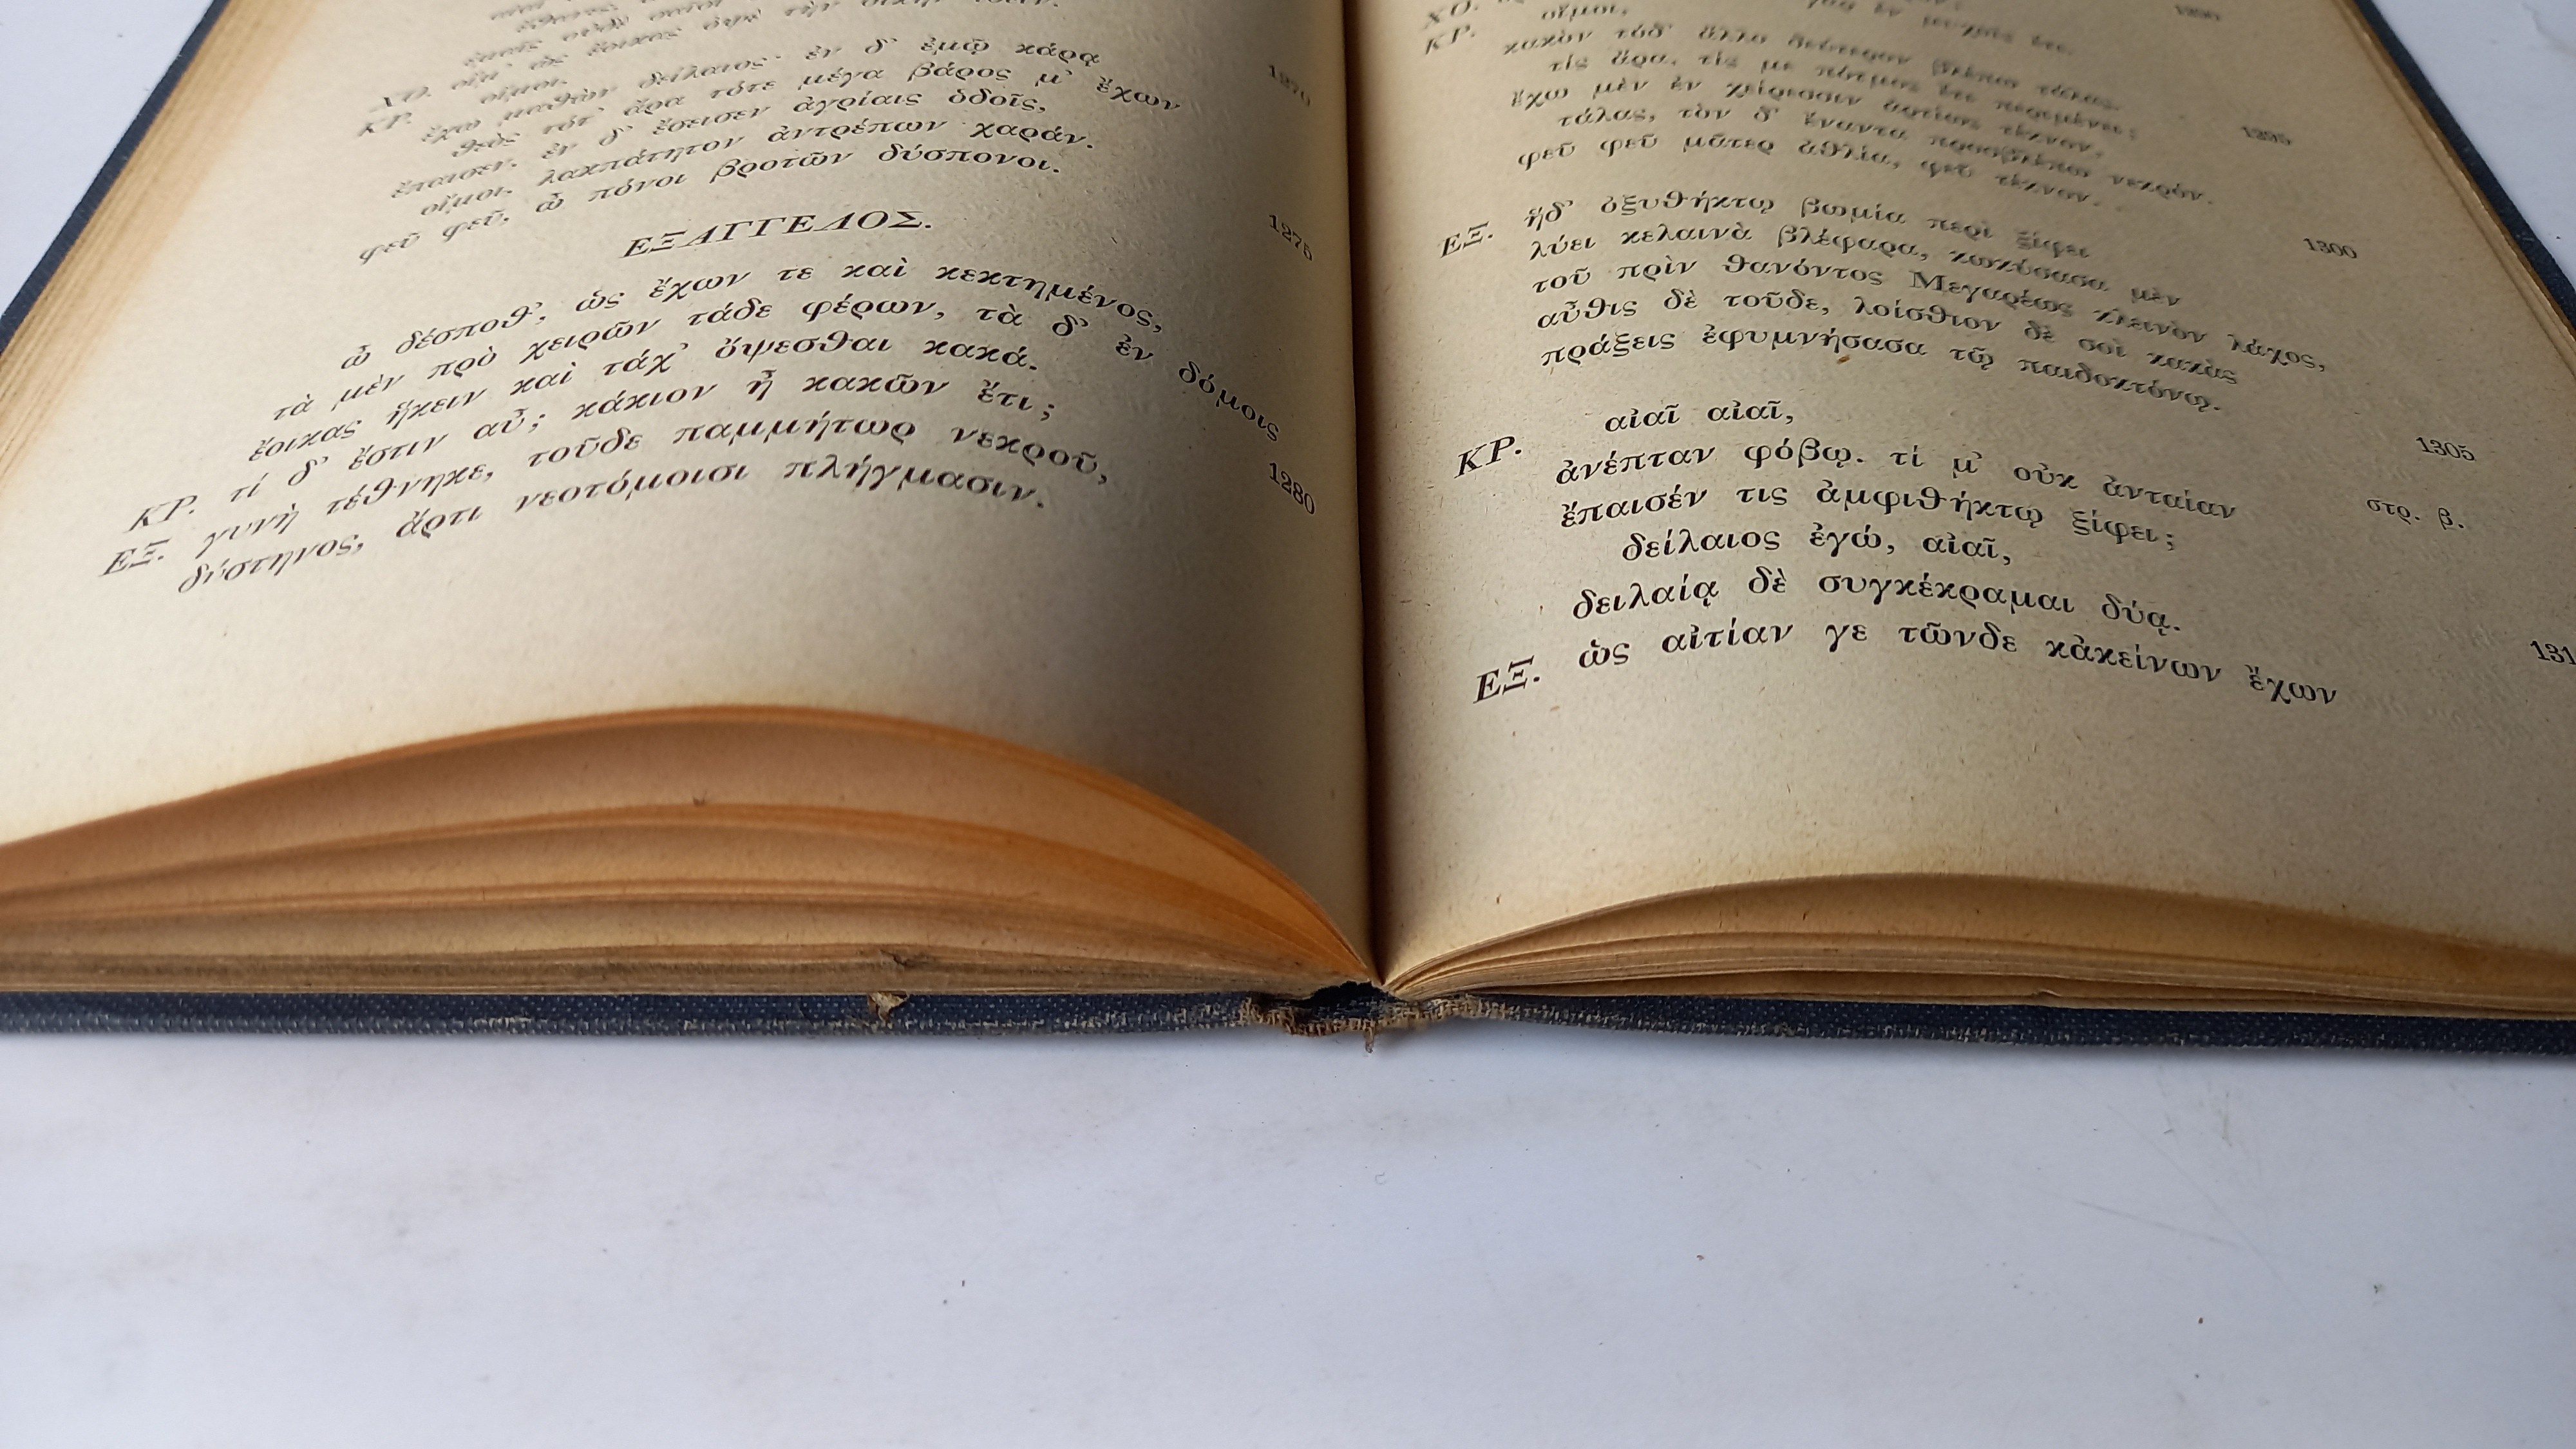 ΧΟ. οἴμ' ὡς ἔοικας ὀψὲ τὴν δίκην ἰδεῖν.
ΚΡ. οἴμοι,
ἔχω μαθὼν δείλαιος· ἐν δ' ἐμῷ κάρᾳ
θεὸς τότ' ἄρα τότε μέγα βάρος μ' ἔχων
1270
ἔπαισεν, ἐν δ' ἔσεισεν ἀγρίαις ὁδοῖς,
οἴμοι, λακπάτητον ἀντρέπων χαράν.
φεῦ φεῦ, ὦ πόνοι βροτῶν δύσπονοι.
1275
ΕΞΑΓΓΕΛΟΣ.
ὦ δέσποθ', ὡς ἔχων τε καὶ κεκτημένος,
τὰ μὲν πρὸ χειρῶν τάδε φέρων, τὰ δ' ἐν δόμοις
ἔοικας ἥκειν καὶ τάχ' ὄψεσθαι κακά.
1280
ΚΡ. τί δ' ἔστιν αὖ; κάκιον ἢ κακῶν ἔτι;
ΕΞ. γυνὴ τέθνηκε, τοῦδε παμμήτωρ νεκροῦ,
δύστηνος, ἄρτι νεοτόμοισι πλήγμασιν.
ΧΟ.
ΚΡ. οἴμοι,
κακὸν τόδ' ἄλλο δεύτερον βλέπω τάλας.
1295
τίς ἄρα, τίς με πότμος ἔτι περιμένει;
ἔχω μὲν ἐν χείρεσσιν ἀρτίως τέκνον,
τάλας, τὸν δ' ἔναντα προσβλέπω νεκρόν.
φεῦ φεῦ μᾶτερ ἀθλία, φεῦ τέκνον.
1300
ΕΞ. ἥδ' ὀξυθήκτῳ βωμία περὶ ξίφει
λύει κελαινὰ βλέφαρα, κωκύσασα μὲν
τοῦ πρὶν θανόντος Μεγαρέως κλεινὸν λάχος,
αὖθις δὲ τοῦδε, λοίσθιον δὲ σοὶ κακὰς
πράξεις ἐφυμνήσασα τῷ παιδοκτόνῳ.
1305
ΚΡ. αἰαῖ αἰαῖ,
στρ. β.
ἀνέπταν φόβῳ. τί μ' οὐκ ἀνταίαν
ἔπαισέν τις ἀμφιθήκτῳ ξίφει;
δείλαιος ἐγώ, αἰαῖ,
δειλαίᾳ δὲ συγκέκραμαι δύᾳ.
131
ΕΞ. ὡς αἰτίαν γε τῶνδε κἀκείνων ἔχων